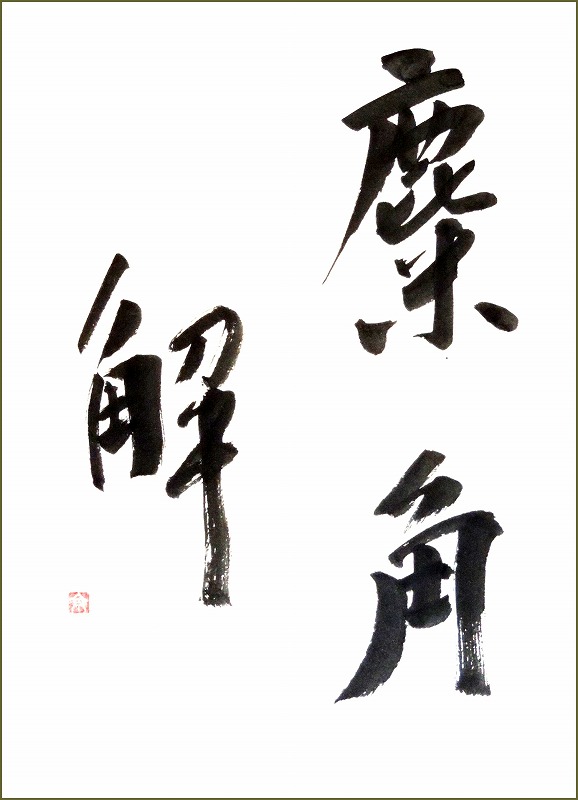 麋角
解